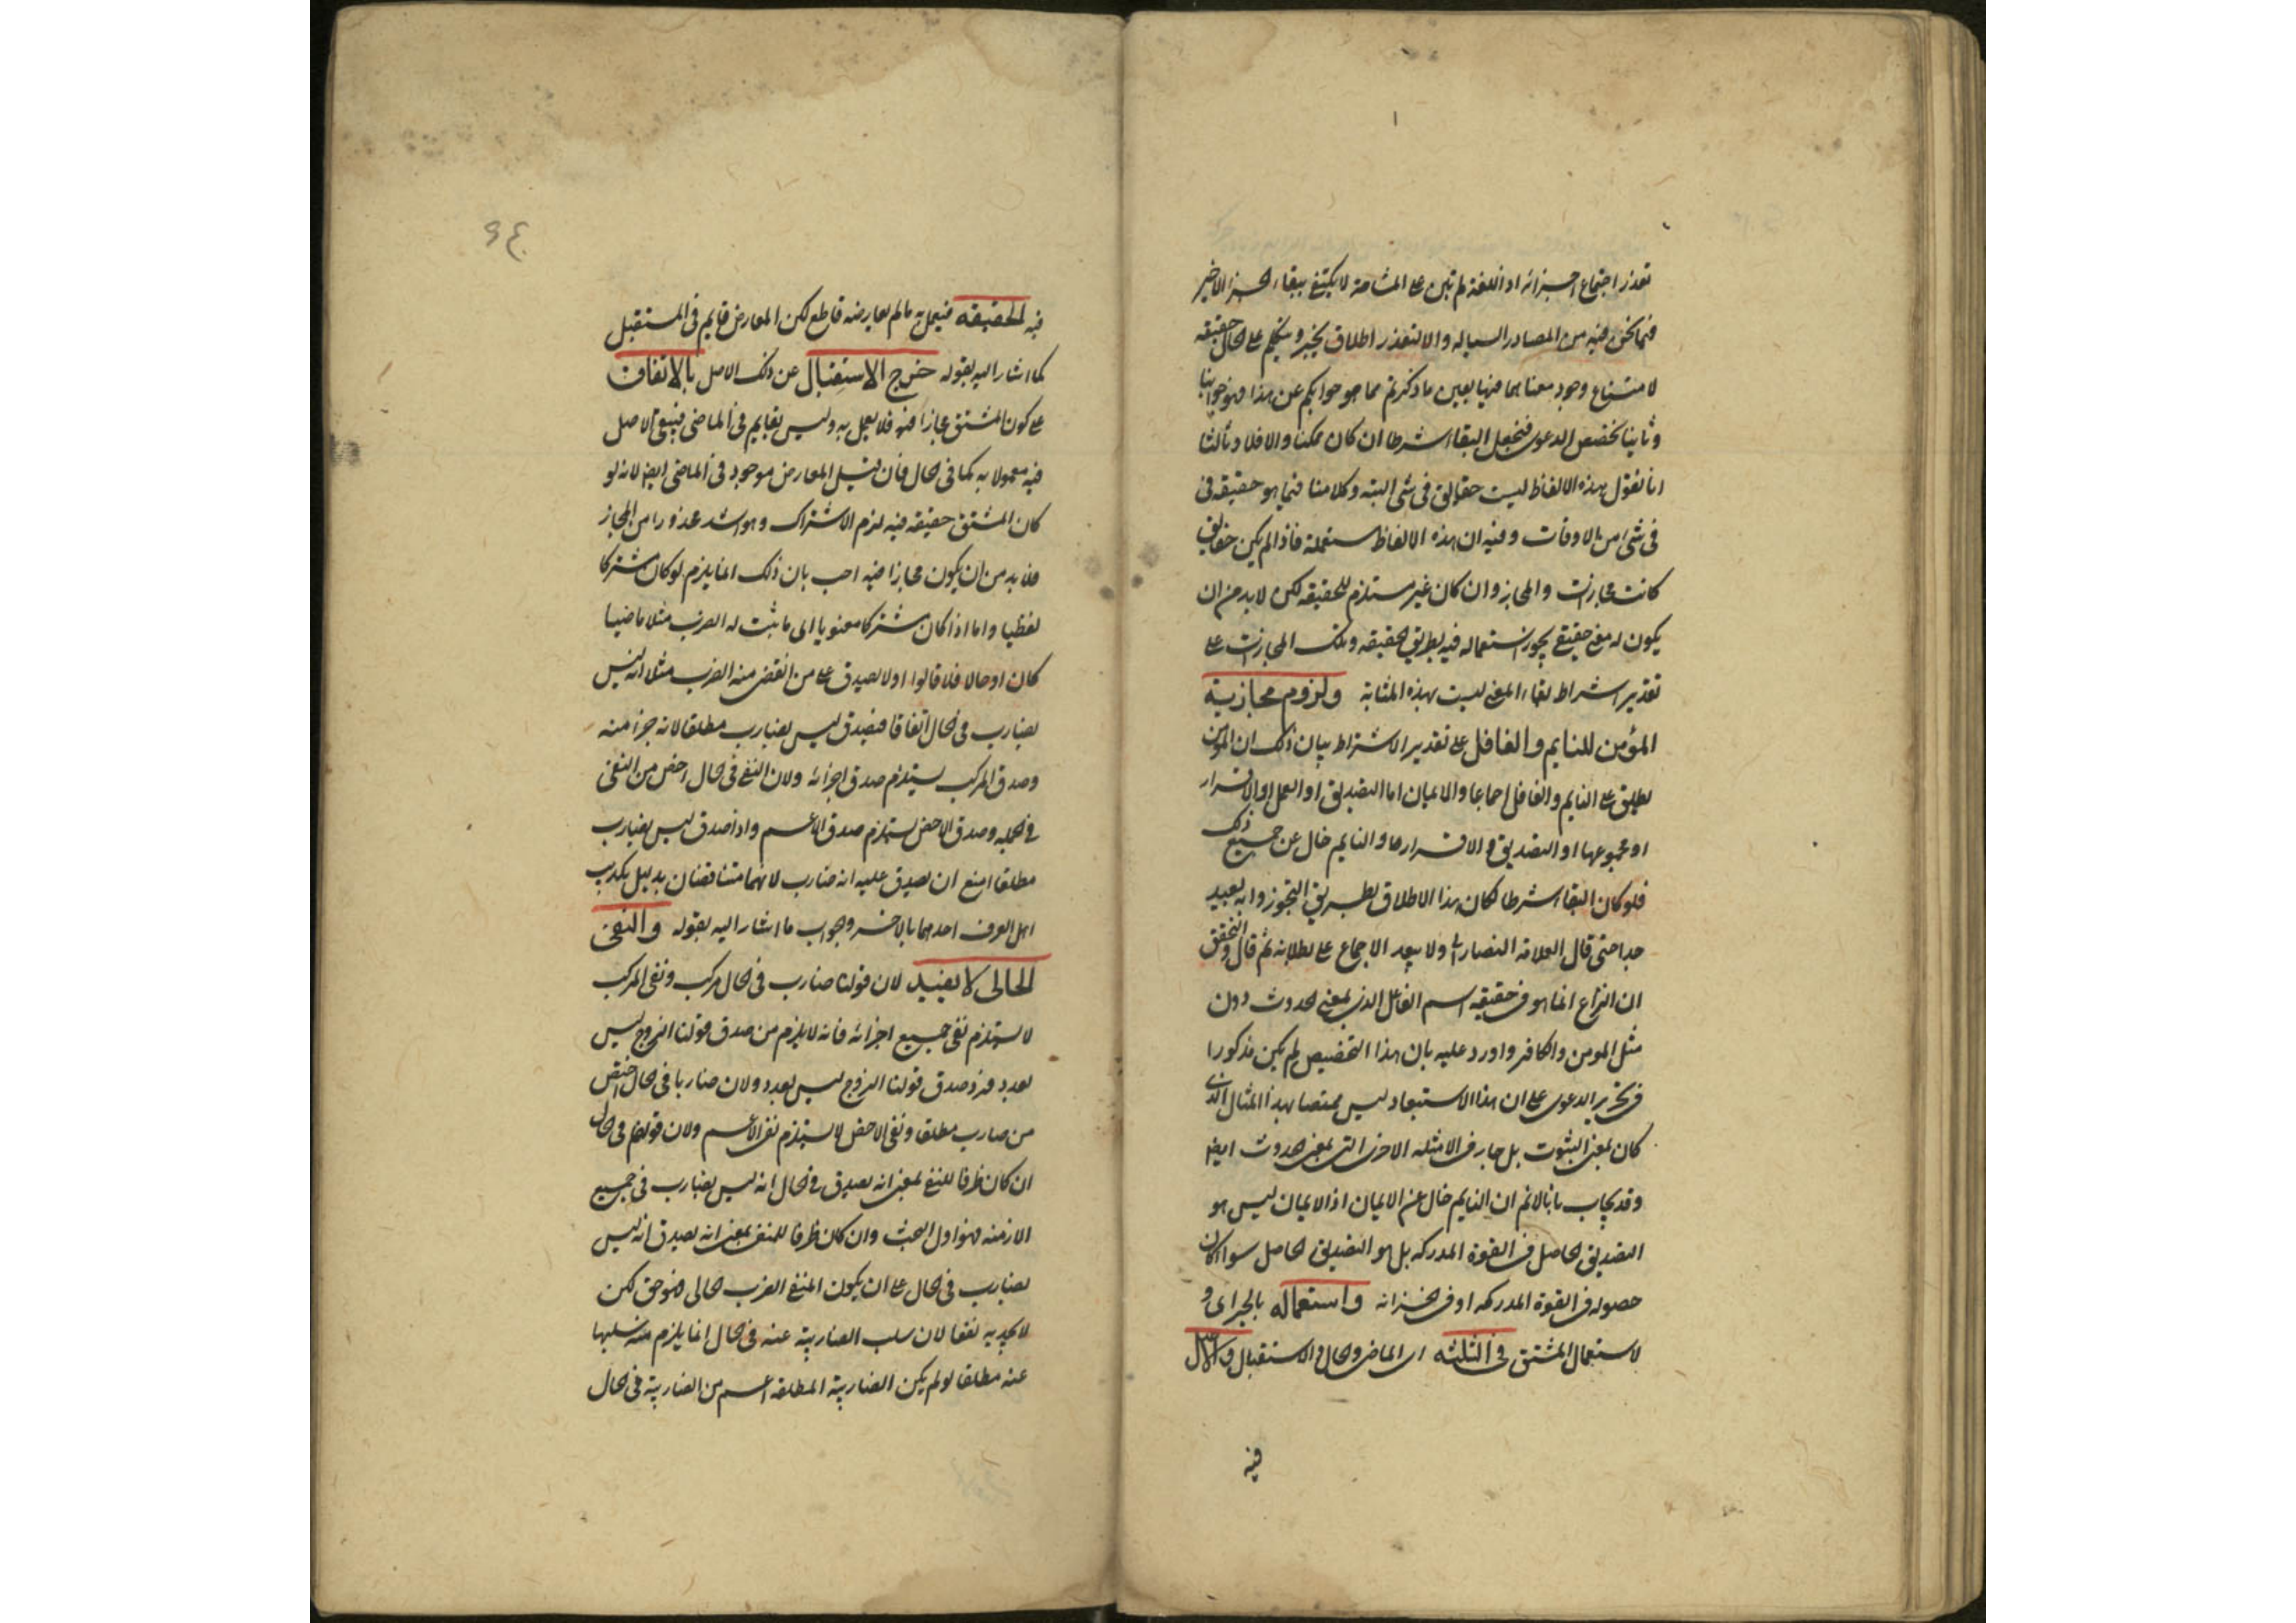 تعذر اجتماع اجزائه اذ اللغة لم تبن على المشاحة لا يكتفى ببقاء الجزء الاخير
فيما نحن فيه من المصادر السيالة والا لتعذر اطلاق يخبر ويتكلم على الحال حقيقه
لامتناع وجود معناهما فيها بعين ما ذكرتم فما هو جوابكم عن هذا فهو جوابنا
وثانيا نخصص الدعوى فنجعل البقاء شرطا ان كان ممكنا والا فلا وثالثا
انا نقول هذه الالفاظ ليست حقائق فى شئ البته وكلامنا فيما هو حقيقه فى
فى شئ من الاوقات وفيه ان هذه الالفاظ مستعملة فاذا لم يكن حقايق
كانت مجازات والمجاز وان كان غير مستلزم للحقيقه لكن لا بد من ان
يكون له معنى حقيقى يجوز استعماله فيه بطريق الحقيقه وتلك المجازات على
تقدير اشتراط بقاء المعنى ليست بهذه المثابة ولزوم مجازية
المؤمن للنايم والغافل على تقدير الاشتراط بيان ذلك ان المؤمن
يطلق على النايم والغافل اجماعا والايمان اما التصديق او العمل او الاقرار
او مجموعها او التصديق والاقرار معا والنايم خال عن جميع ذلك
فلو كان البقاء شرطا لكان هذا الاطلاق بطريق التجوز وانه بعيد
جدا حتى قال العلامة النصارى ولا يبعد الاجماع على بطلانه ثم قال والتحقق
ان النزاع انما هو فى حقيقه اسم الفاعل الذى بمعنى الحدوث دون
مثل المومن والكافر واورد عليه بان هذا التخصيص لم يكن مذكورا
فى تحرير الدعوى على ان هذا الاستبعاد ليس مختصا بهذا المثال الذى
كان بمعنى الثبوت بل جار فى الامثله الاخرى التى بمعنى الحدوث ايضا
وقد يجاب بانا لانم ان النايم خال عن الايمان اذ الايمان ليس هو
التصديق الحاصل فى القوة المدركه بل هو التصديق الحاصل سواء كان
حصوله فى القوة المدركه او فى الخزانه واستعماله بالجر اى و
لاستعمال المشتق فى الثلثه اى الماضى والحال والاستقبال والاصل
فيه
فيه الحقيقه فيعمل به ما لم يعارضه قاطع لكن المعارض قايم فى المستقبل
كما اشار اليه بقوله خرج الاستقبال عن ذلك الاصل بالاتفاق
على كون المشتق مجازا فيه فلا يعمل به وليس بقايم فى الماضى فيبقى الاصل
فيه معمولا به كما فى الحال فان قيل المعارض موجود فى الماضى ايضا لانه لو
كان المشتق حقيقه فيه لزم الاشتراك وهو اشد محذورا من المجاز
فلا بد من ان يكون مجازا فيه اجيب بان ذلك انما يلزم لو كان مشتركا
لفظيا واما اذا كان مشتركا معنويا اى ما ثبت له الضرب مثلا ماضيا
كان او حالا فلا قالوا اولا يصدق على من انقضى منه الضرب مثلا انه ليس
بضارب فى الحال اتفاقا فيصدق ليس بضارب مطلقا لانه جزء منه
وصدق المركب يستلزم صدق اجزائه ولان النفى فى الحال اخص من النفى
فى الجملة وصدق الاخص يستلزم صدق الاعم واذا صدق ليس بضارب
مطلقا امتنع ان يصدق عليه انه ضارب لانهما متناقضان بدليل تكذيب
اهل العرف احدهما بالاخر وجواب ما اشار اليه بقوله والنفى
الحالى لا يفيد لان قولنا ضارب فى الحال مركب ونفى المركب
لا يستلزم نفى جميع اجزائه فانه لا يلزم من صدق قولنا الزوج ليس
بعدد فرد صدق قولنا الزوج ليس بعدد ولان ضاربا فى الحال اخص
من ضارب مطلقا ونفى الاخص لا يستلزم نفى الاعم ولان قولهم فى الحال
ان كان ظرفا للنفى بمعنى انه يصدق فى الحال انه ليس بضارب فى جميع
الازمنه فهو اول البحث وان كان ظرفا للمنفى بمعنى انه يصدق انه ليس
بضارب فى الحال على ان يكون المنفى الضرب الحالى فهو حق لكن
لا يجديه نفعا لان سلب الضاربية عنه فى الحال انما يلزم منه سلبها
عنه مطلقا لو لم يكن الضاربية المطلقه اعم من الضاربية فى الحال